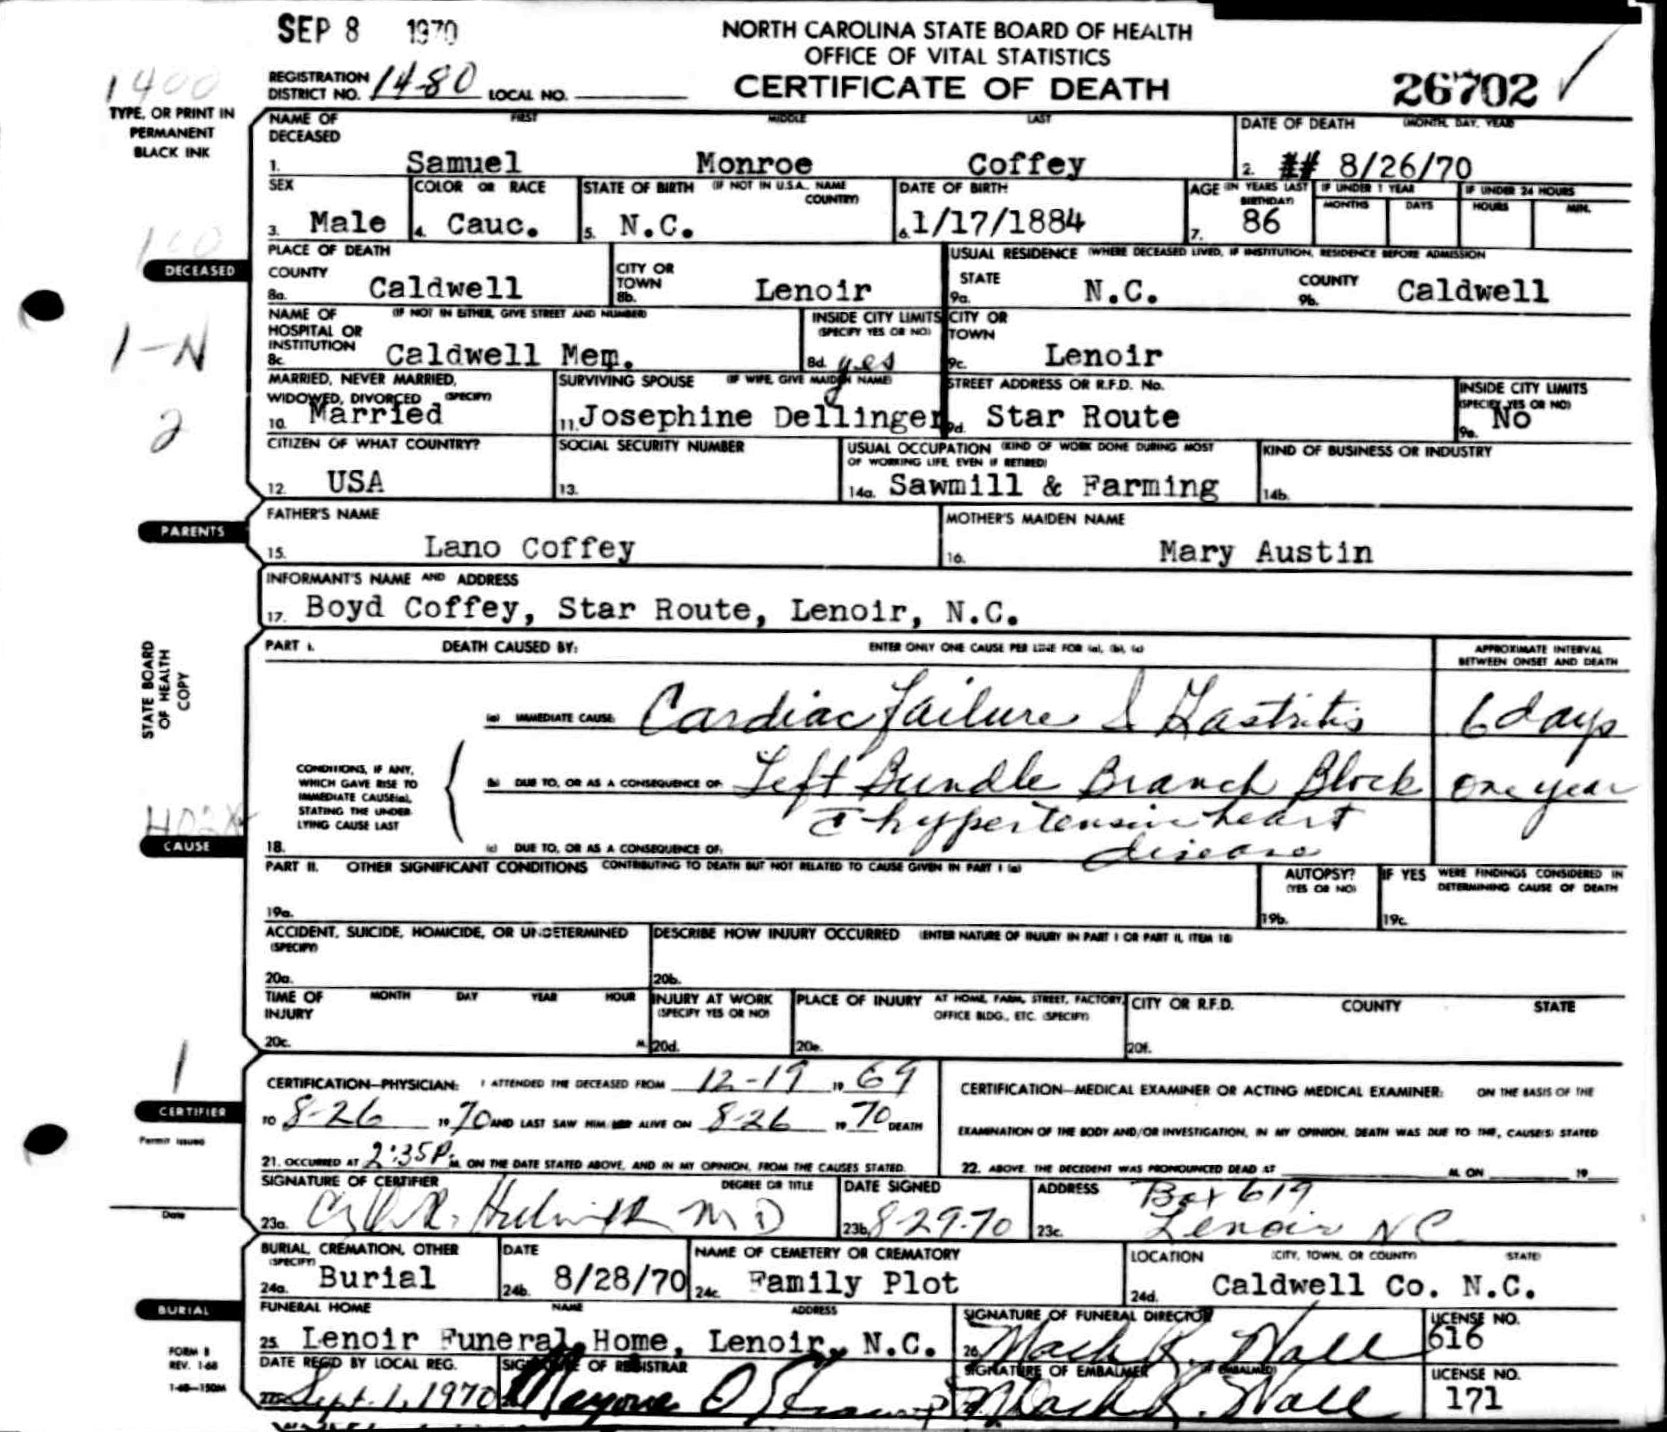 SEP 8 1970
NORTH CAROLINA STATE BOARD OF HEALTH
OFFICE OF VITAL STATISTICS
CERTIFICATE OF DEATH
1400
REGISTRATION DISTRICT NO. 14-80 LOCAL NO.
26702 ✓
TYPE, OR PRINT IN
PERMANENT
BLACK INK
NAME OF DECEASED FIRST MIDDLE LAST DATE OF DEATH (MONTH, DAY, YEAR)
1. Samuel Monroe Coffey 2. ## 8/26/70
SEX COLOR OR RACE STATE OF BIRTH (IF NOT IN U.S.A., NAME COUNTRY) DATE OF BIRTH AGE (IN YEARS LAST BIRTHDAY) IF UNDER 1 YEAR IF UNDER 24 HOURS
MONTHS DAYS HOURS MIN.
3. Male 4. Cauc. 5. N.C. 6. 1/17/1884 7. 86
100
DECEASED
PLACE OF DEATH USUAL RESIDENCE (WHERE DECEASED LIVED, IF INSTITUTION, RESIDENCE BEFORE ADMISSION)
COUNTY CITY OR TOWN STATE COUNTY
8a. Caldwell 8b. Lenoir 9a. N.C. 9b. Caldwell
NAME OF HOSPITAL OR INSTITUTION (IF NOT IN EITHER, GIVE STREET AND NUMBER) INSIDE CITY LIMITS (SPECIFY YES OR NO) CITY OR TOWN
8c. Caldwell Mem. 8d. yes 9c. Lenoir
1-N
MARRIED, NEVER MARRIED, WIDOWED, DIVORCED (SPECIFY) SURVIVING SPOUSE (IF WIFE, GIVE MAIDEN NAME) STREET ADDRESS OR R.F.D. No. INSIDE CITY LIMITS (SPECIFY YES OR NO)
10. Married 11. Josephine Dellinger 9d. Star Route 9e. No
2
CITIZEN OF WHAT COUNTRY? SOCIAL SECURITY NUMBER USUAL OCCUPATION (KIND OF WORK DONE DURING MOST OF WORKING LIFE, EVEN IF RETIRED) KIND OF BUSINESS OR INDUSTRY
12. USA 13. 14a. Sawmill & Farming 14b.
PARENTS
FATHER'S NAME MOTHER'S MAIDEN NAME
15. Lano Coffey 16. Mary Austin
INFORMANT'S NAME AND ADDRESS
17. Boyd Coffey, Star Route, Lenoir, N.C.
STATE BOARD
OF HEALTH
COPY
PART I. DEATH CAUSED BY: ENTER ONLY ONE CAUSE PER LINE FOR (a), (b), (c) APPROXIMATE INTERVAL BETWEEN ONSET AND DEATH
(a) IMMEDIATE CAUSE: Cardiac failure & Gastritis 6 days
CONDITIONS, IF ANY,
WHICH GAVE RISE TO
IMMEDIATE CAUSE(a),
STATING THE UNDER-
LYING CAUSE LAST
(b) DUE TO, OR AS A CONSEQUENCE OF: Left Bundle Branch Block one year
c̄ hypertensive heart
18. (c) DUE TO, OR AS A CONSEQUENCE OF: disease
402X
CAUSE
PART II. OTHER SIGNIFICANT CONDITIONS CONTRIBUTING TO DEATH BUT NOT RELATED TO CAUSE GIVEN IN PART I (a) AUTOPSY? (YES OR NO) IF YES WERE FINDINGS CONSIDERED IN DETERMINING CAUSE OF DEATH
19a. 19b. 19c.
ACCIDENT, SUICIDE, HOMICIDE, OR UNDETERMINED (SPECIFY) DESCRIBE HOW INJURY OCCURRED (ENTER NATURE OF INJURY IN PART I OR PART II, ITEM 18)
20a. 20b.
TIME OF INJURY MONTH DAY YEAR HOUR INJURY AT WORK (SPECIFY YES OR NO) PLACE OF INJURY AT HOME, FARM, STREET, FACTORY, OFFICE BLDG., ETC. (SPECIFY) CITY OR R.F.D. COUNTY STATE
20c. M. 20d. 20e. 20f.
1
CERTIFIER
Permit issued
Date
CERTIFICATION—PHYSICIAN: I ATTENDED THE DECEASED FROM 12-19 19 69
TO 8-26 19 70 AND LAST SAW HIM/HER ALIVE ON 8-26 19 70 DEATH
21. OCCURRED AT 2:35 P. M. ON THE DATE STATED ABOVE, AND IN MY OPINION, FROM THE CAUSES STATED.
CERTIFICATION—MEDICAL EXAMINER OR ACTING MEDICAL EXAMINER: ON THE BASIS OF THE
EXAMINATION OF THE BODY AND/OR INVESTIGATION, IN MY OPINION, DEATH WAS DUE TO THE, CAUSE(S) STATED
22. ABOVE. THE DECEDENT WAS PRONOUNCED DEAD AT M. ON 19
SIGNATURE OF CERTIFIER DEGREE OR TITLE DATE SIGNED ADDRESS Box 619
23a. M D 23b. 8-29-70 23c. Lenoir NC
BURIAL, CREMATION, OTHER (SPECIFY) DATE NAME OF CEMETERY OR CREMATORY LOCATION (CITY, TOWN, OR COUNTY) STATE)
24a. Burial 24b. 8/28/70 24c. Family Plot 24d. Caldwell Co. N.C.
BURIAL
FUNERAL HOME NAME ADDRESS SIGNATURE OF FUNERAL DIRECTOR LICENSE NO.
25. Lenoir Funeral Home, Lenoir, N.C. 26. Mack R. Wall 616
FORM 8
REV. 1-68
1-68—150M
DATE REC'D BY LOCAL REG. SIGNATURE OF REGISTRAR SIGNATURE OF EMBALMER (IF EMBALMED) LICENSE NO.
Sept. 1, 1970 Mack R. Wall 171